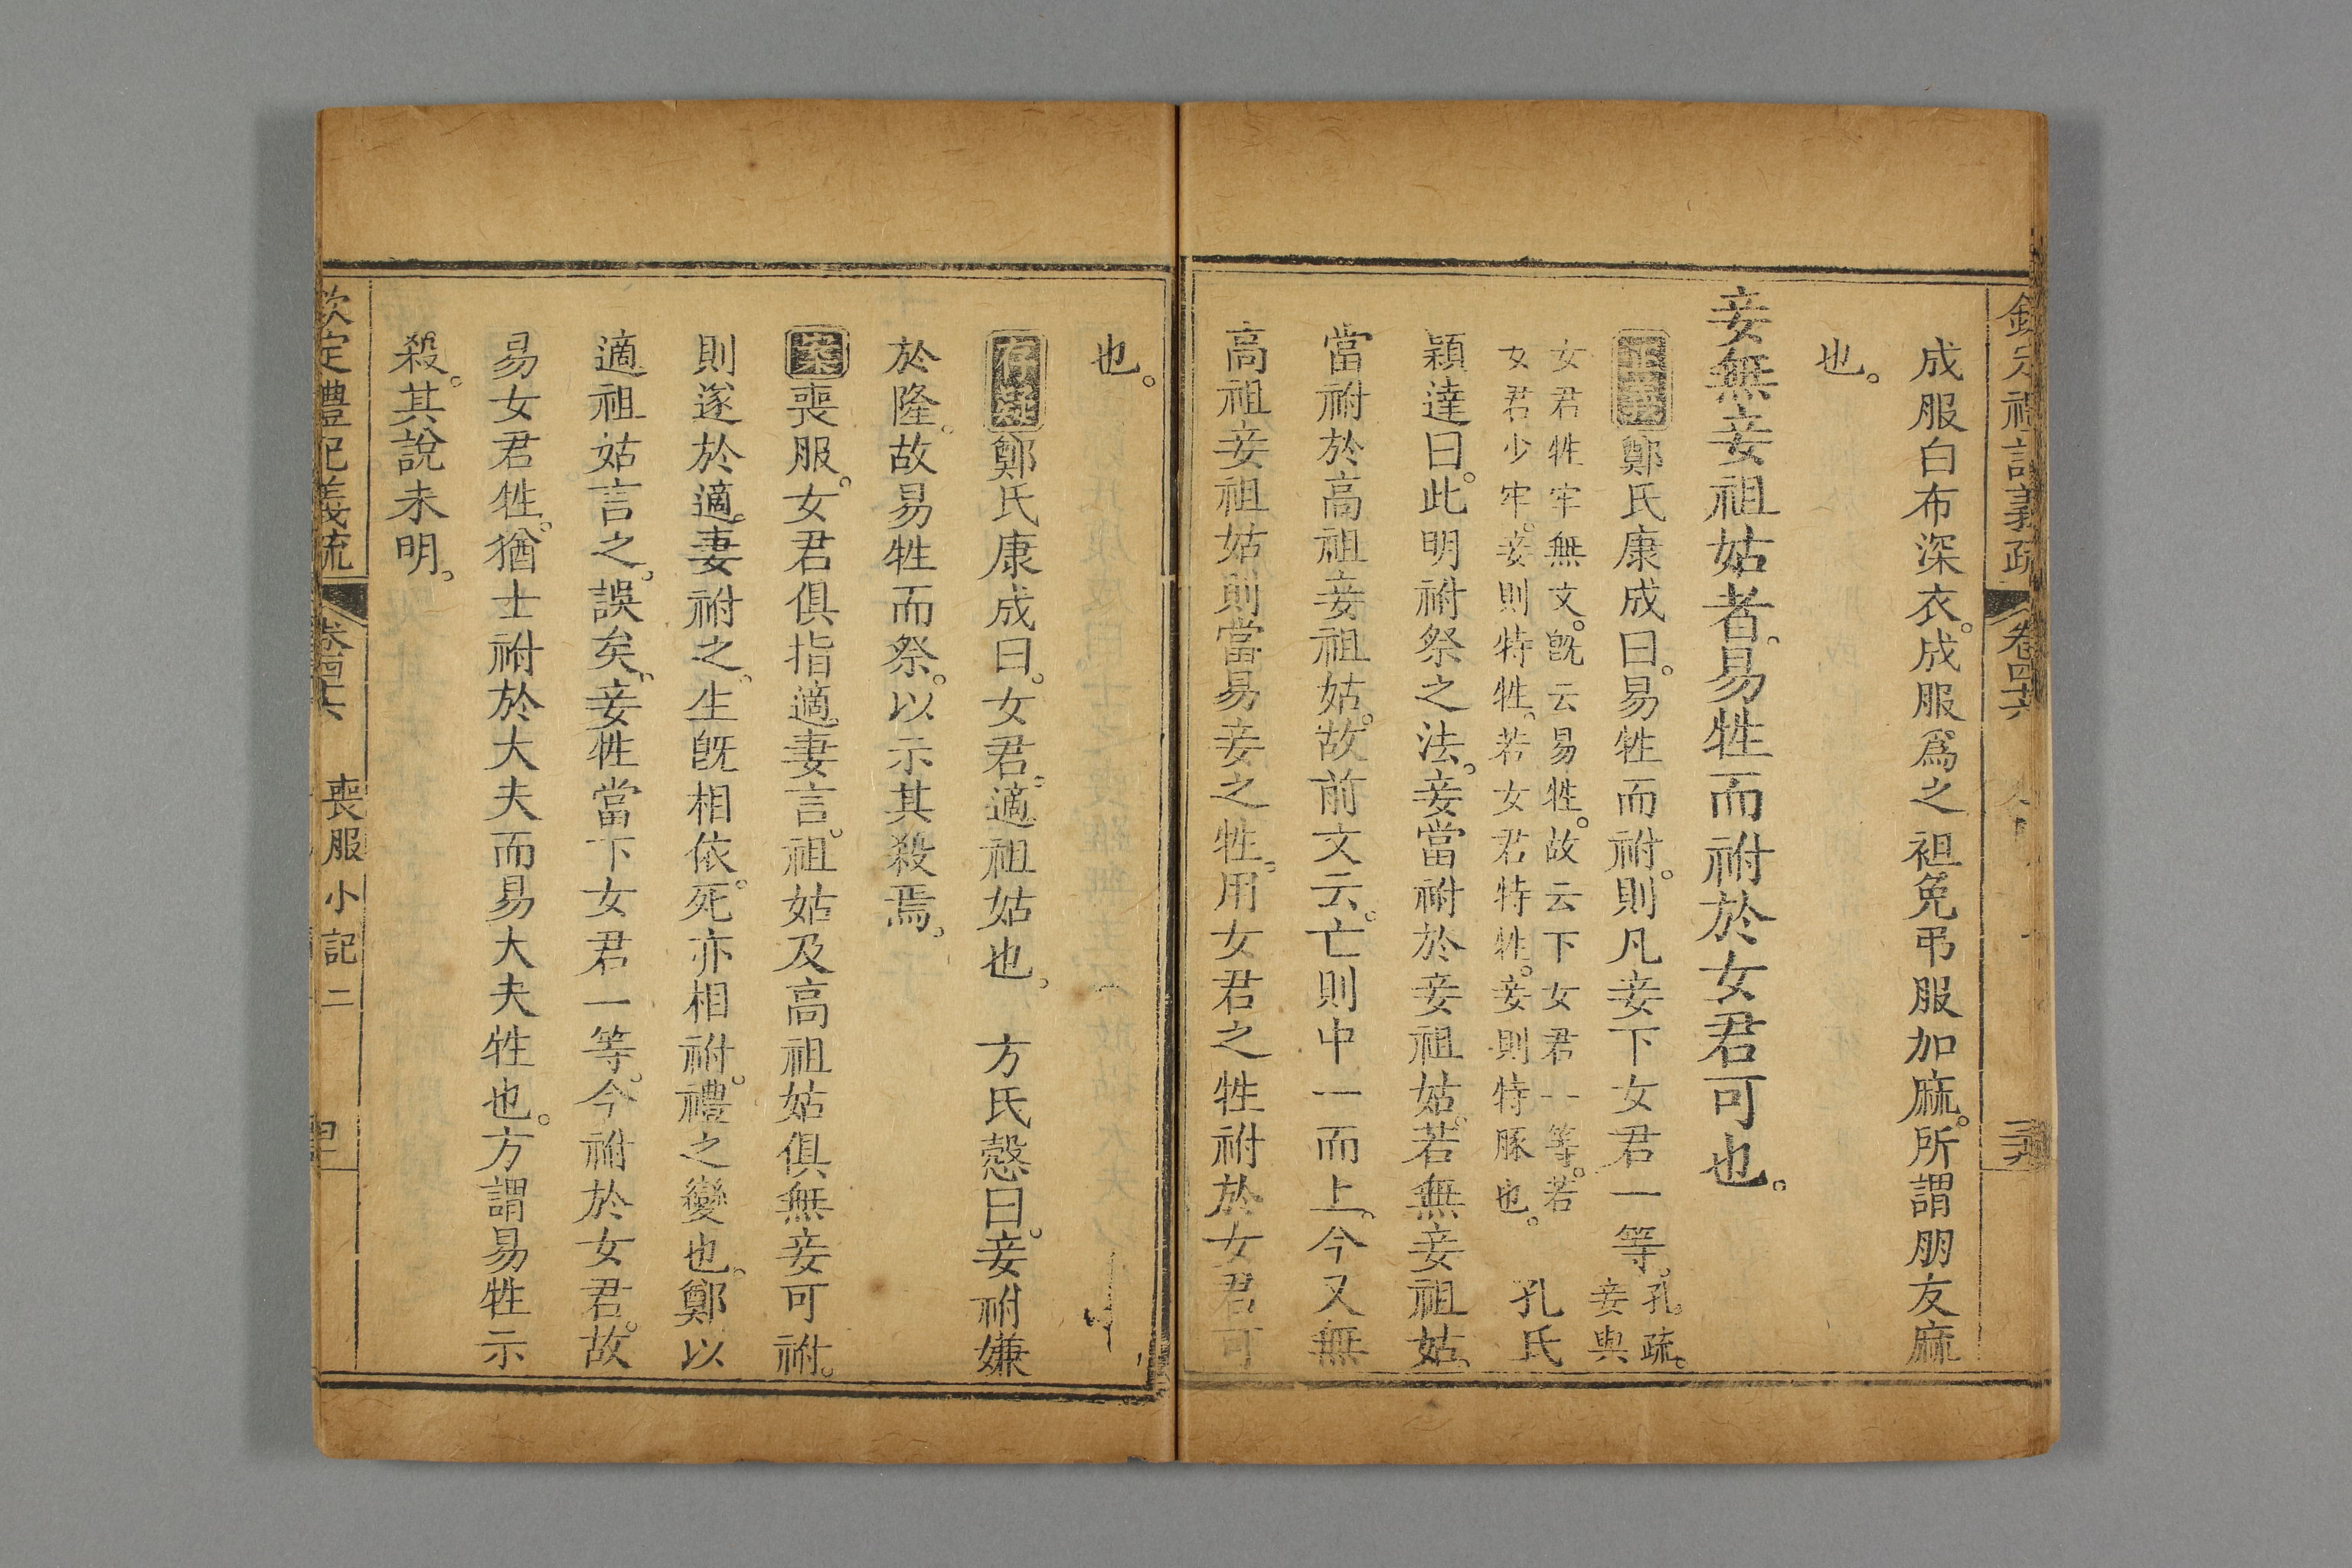 成服白布深衣。成服爲之袒免弔服加麻。所謂朋友麻
也。
妾無妾祖姑者。易牲而祔於女君可也。
正義鄭氏康成曰。易牲而祔。則凡妾下女君一等。孔疏。妾與
女君牲牢無文。旣云易牲。故云下女君一等。若
女君少牢。妾則特牲。若女君特牲。妾則特豚也。 孔氏
穎達曰。此明祔祭之法。妾當祔於妾祖姑。若無妾祖姑。
當祔於高祖妾祖姑。故前文云。亡則中一而上。今又無
高祖妾祖姑則當易妾之牲。用女君之牲祔於女君可
也。
存疑鄭氏康成曰。女君。適祖姑也。 方氏慤曰。妾祔嫌
於隆。故易牲而祭。以示其殺焉。
案喪服。女君俱指適妻言。祖姑及高祖姑俱無妾可祔。
則遂於適。妻祔之。生旣相依。死亦相祔。禮之變也。鄭以
適祖姑言之。誤矣。妾牲當下女君一等。今祔於女君。故
易女君牲。猶士祔於大夫而易大夫牲也。方謂易牲示
殺。其說未明。
欽定禮記義疏 卷四十六 喪服小記二